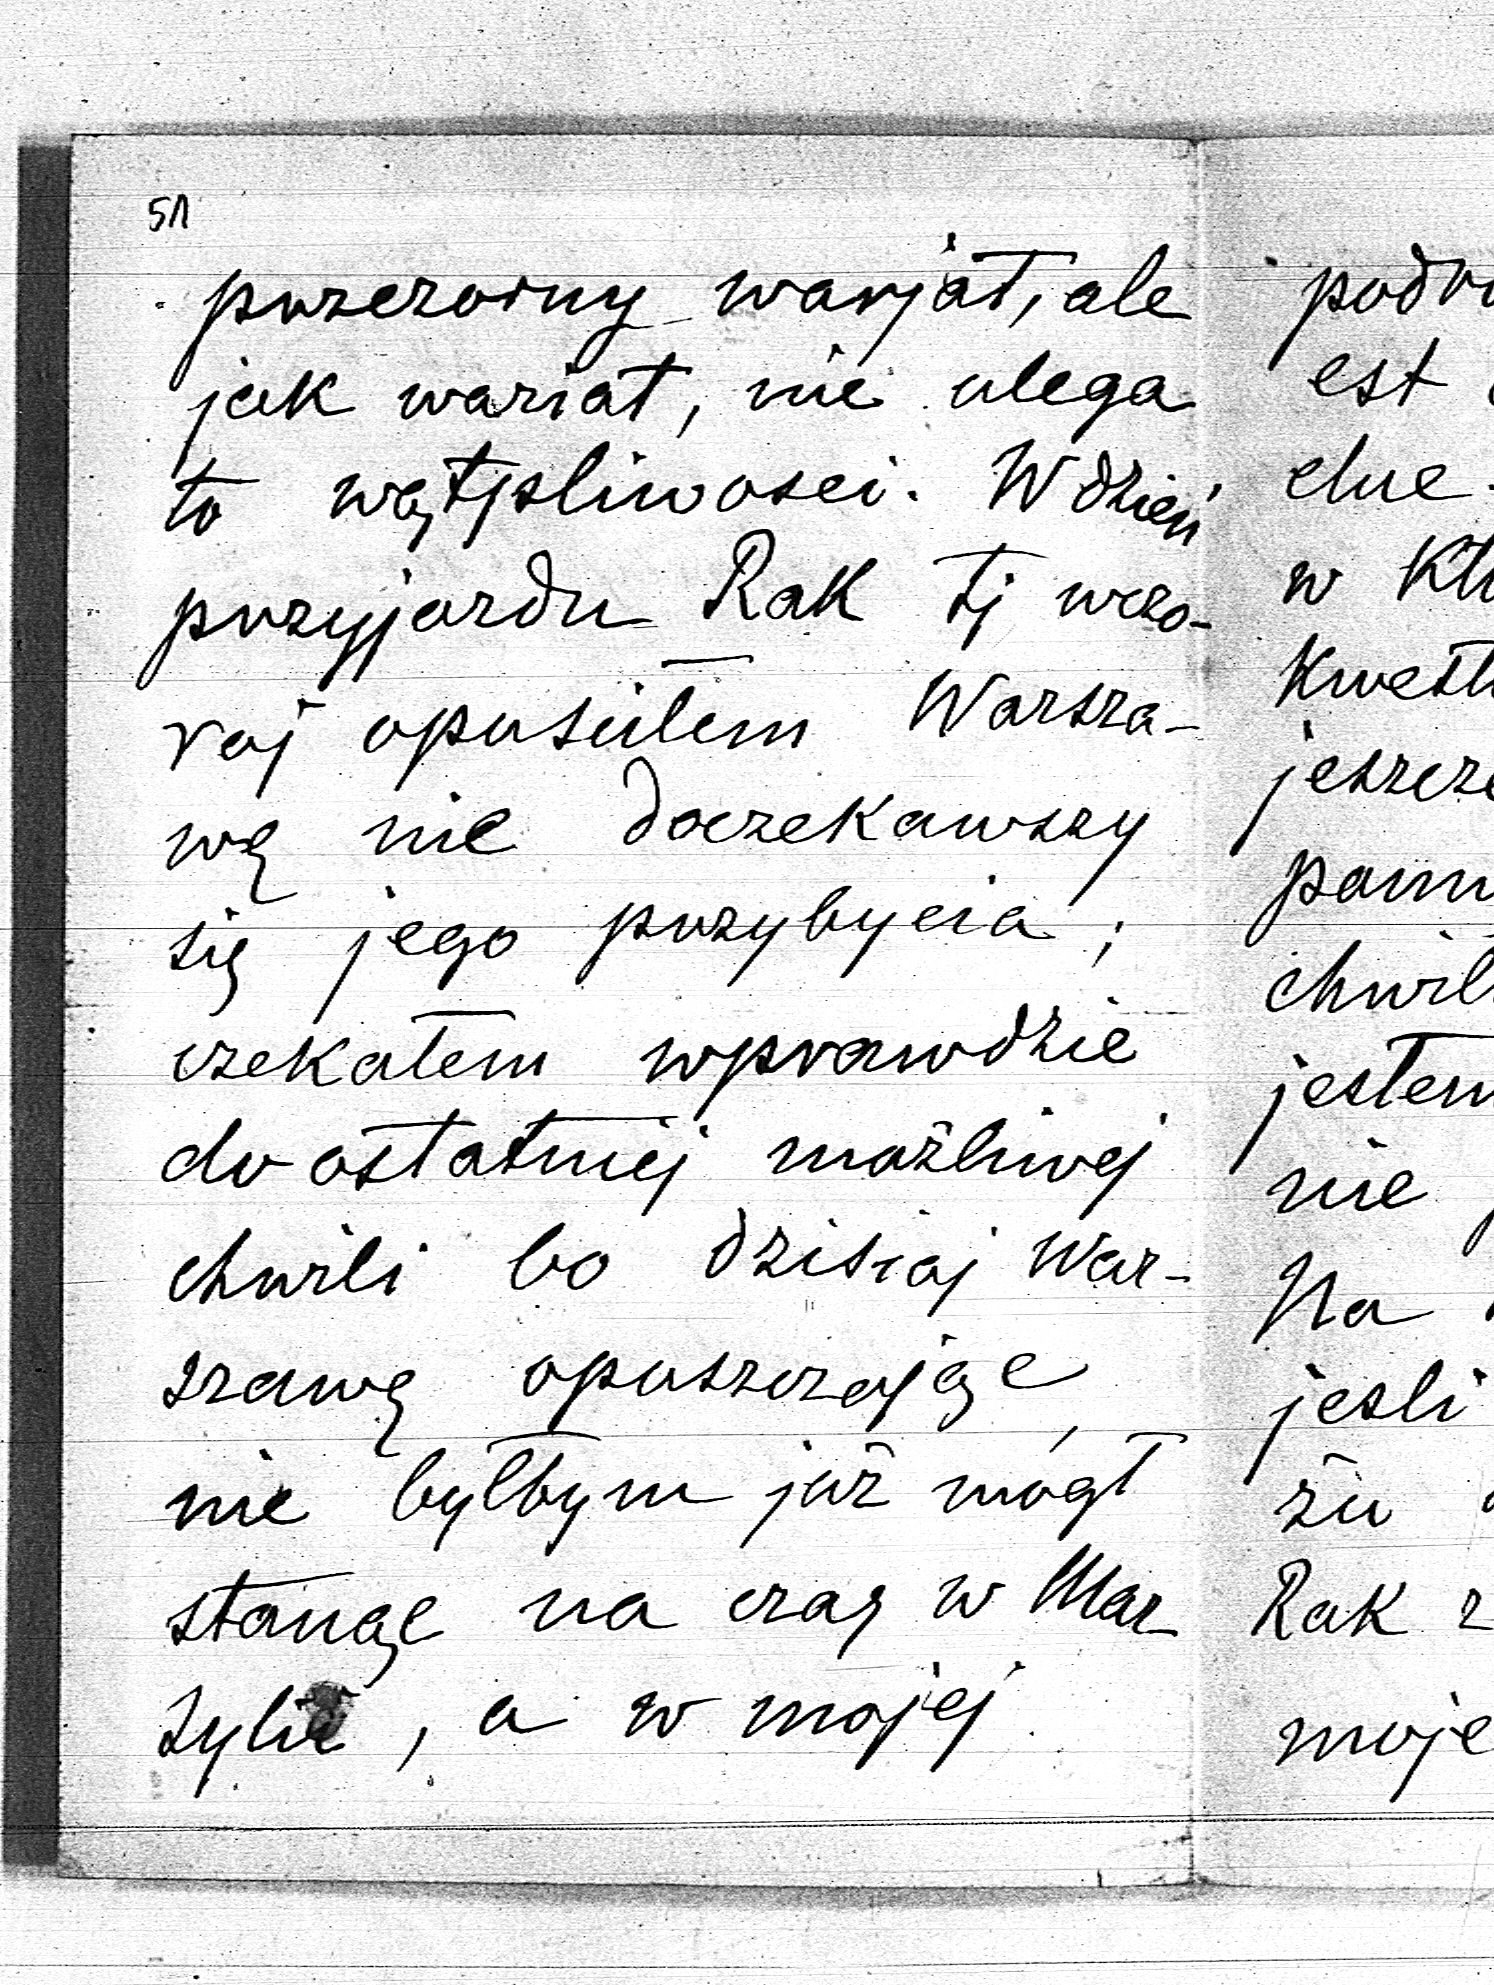 51
przezorny warjat, ale
jak wariat, nie ulega
to wątpliwosci. W dzień
przyjazdu Rak tj wczo-
raj opuściłem Warsza-
wę nie doczekawszy
się jego przybycia ;
czekałem wprawdzie
do ostatniej możliwej
chwili bo dzisiaj War-
szawę opuszczając,
nie byłbym już mógł
stanąć na czas w Mar
sylii, a w mojej
est
nie
Na
jesli
żu
Rak z
moje